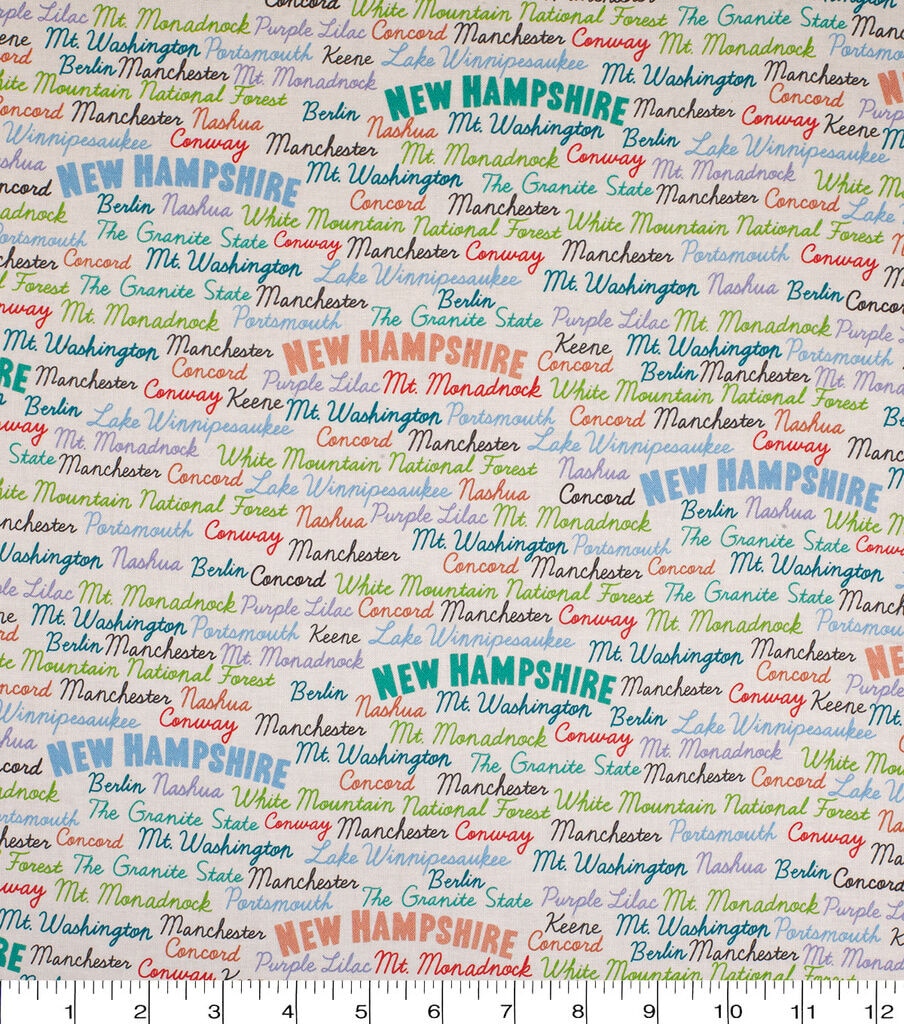 Purple Lilac Mt. Monadnock Purple Lilac White Mountain National Forest The Granite State
Concord Manchester Conway Mt. Monadnock Portsmouth
Mt. Washington Portsmouth Keene Lake Winnipesaukee Mt. Washington Manchester
Berlin Manchester Mt. Monadnock Concord
White Mountain National Forest Berlin NEW HAMPSHIRE Manchester Conway Keene Purple
Concord Manchester Nashua Nashua Mt. Washington Berlin Lake Winnipesaukee Mt.
Winnipesaukee Conway Manchester Mt. Monadnock Conway Mt. Monadnock White M
NEW HAMPSHIRE Mt. Washington The Granite State Manchester Concord Lake
Concord Berlin Nashua Concord Manchester
Monadnock White Mountain National Forest White Mountain National Forest
Portsmouth The Granite State Conway Manchester Conway Manchester Portsmouth Conway
Manchester Concord Mt. Washington Lake Winnipesaukee Mt. Washington Nashua Berlin Concord
Forest The Granite State Manchester Berlin
Conway Mt. Monadnock Portsmouth The Granite State Purple Lilac Mt. Monadnock Purple
Mt. Washington Manchester NEW HAMPSHIRE Keene Mt. Washington Portsmouth
Concord Concord Berlin Manchester Mt. Mona
RE Manchester Conway Keene Purple Lilac Mt. Monadnock White Mountain National Forest
Berlin Lake Winnipesaukee Mt. Washington Portsmouth Concord Manchester Nashua
Conway Mt. Monadnock Concord Manchester Lake Winnipesaukee Conway Man
State Manchester White Mountain National Forest Nashua NEW HAMPSHIRE
Concord Lake Winnipesaukee Nashua Concord Berlin Nashua White M
White Mountain National Forest Nashua Purple Lilac Mt. Monadnock The Granite State Conway
Manchester Portsmouth Conway Manchester Mt. Washington Portsmouth
Washington Nashua Berlin Concord Concord Manchester Concord Mt. Washington
White Mountain National Forest The Granite State Manch
Lilac Mt. Monadnock Purple Lilac Concord Manchester Conway Mt. Monadnock Portsmou
Mt. Washington Portsmouth Keene Lake Winnipesaukee Mt. Washington Manchester
Berlin Manchester Mt. Monadnock Concord
Mountain National Forest Berlin NEW HAMPSHIRE Manchester Conway Keene Purple
Concord Manchester Nashua Nashua Mt. Washington Berlin Lake Winnipesaukee Mt.
Winnipesaukee Conway Manchester Mt. Monadnock Conway Mt. Monadnock White M
NEW HAMPSHIRE Mt. Washington The Granite State Manchester Concord Lake W
Berlin Nashua Concord Manchester
Monadnock White Mountain National Forest White Mountain National Forest
Portsmouth The Granite State Conway Manchester Conway Manchester Portsmouth Conway
Manchester Concord Mt. Washington Lake Winnipesaukee Mt. Washington Nashua Berlin Concord
Forest The Granite State Manchester Berlin
Conway Mt. Monadnock Portsmouth The Granite State Purple Lilac Mt. Monadnock Purple L
Mt. Washington Manchester NEW HAMPSHIRE Keene Mt. Washington Portsmouth K
Concord Concord Berlin Manchester Mt. Monad
RE Manchester Conway Purple Lilac Mt. Monadnock White Mountain National Forest
1 2 3 4 5 6 7 8 9 10 11 12